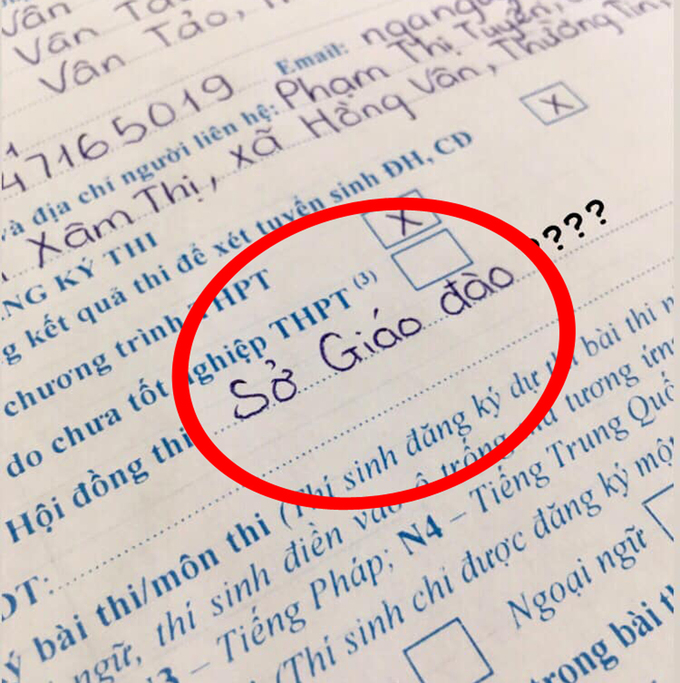 Vân
Văn
Vân Tảo,
Email:
47165019
và địa chỉ người liên hệ: Phạm Thị Tuyến,
Xâm Thị, xã Hồng Vân, Thường Tín,
X
NG KÝ THI
g kết quả thi để xét tuyển sinh ĐH, CĐ
X
chương trình THPT
do chưa tốt nghiệp THPT (3)
Hội đồng thi Sở Giáo đào ????
ĐT:
ý bài thi/môn thi (Thí sinh đăng ký dự thi bài thi
ngữ, thí sinh điền vào ô trống tương ứng
3 – Tiếng Pháp; N4 – Tiếng Trung Quố
(Thí sinh chỉ được đăng ký mộ
Ngoại ngữ
trong bài